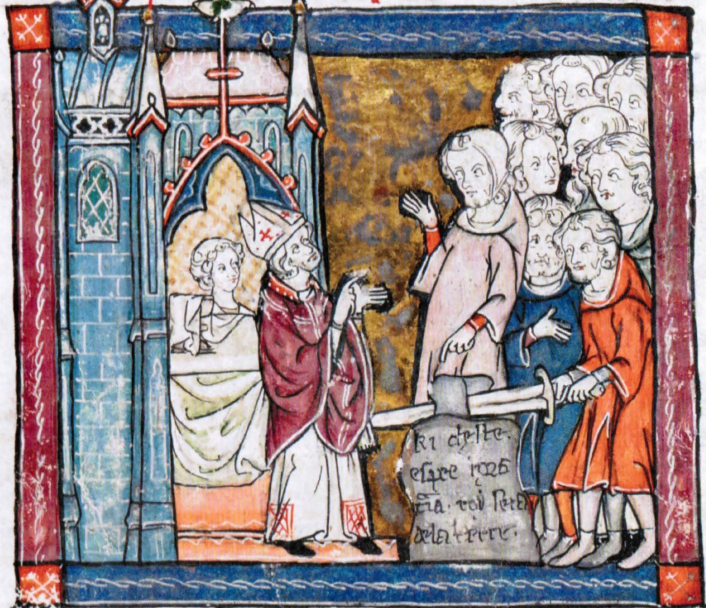 ki cheste.
espee
roi sera
dela terre.